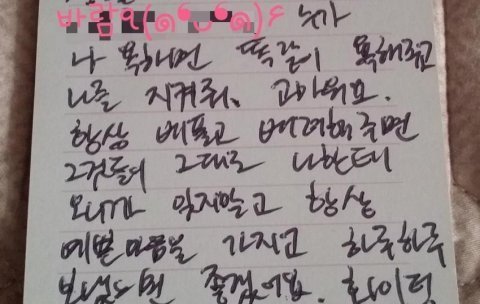 바람 누가
나 욕하면 똑같이 욕해주고
나를 지켜줘. 고마워요.
항상 베풀고 배려해주면
그것들이 그대로 너한테
오니까 잊지말고 항상
예쁜마음을 가지고 하루하루
보냈으면 좋겠어요. 화이팅